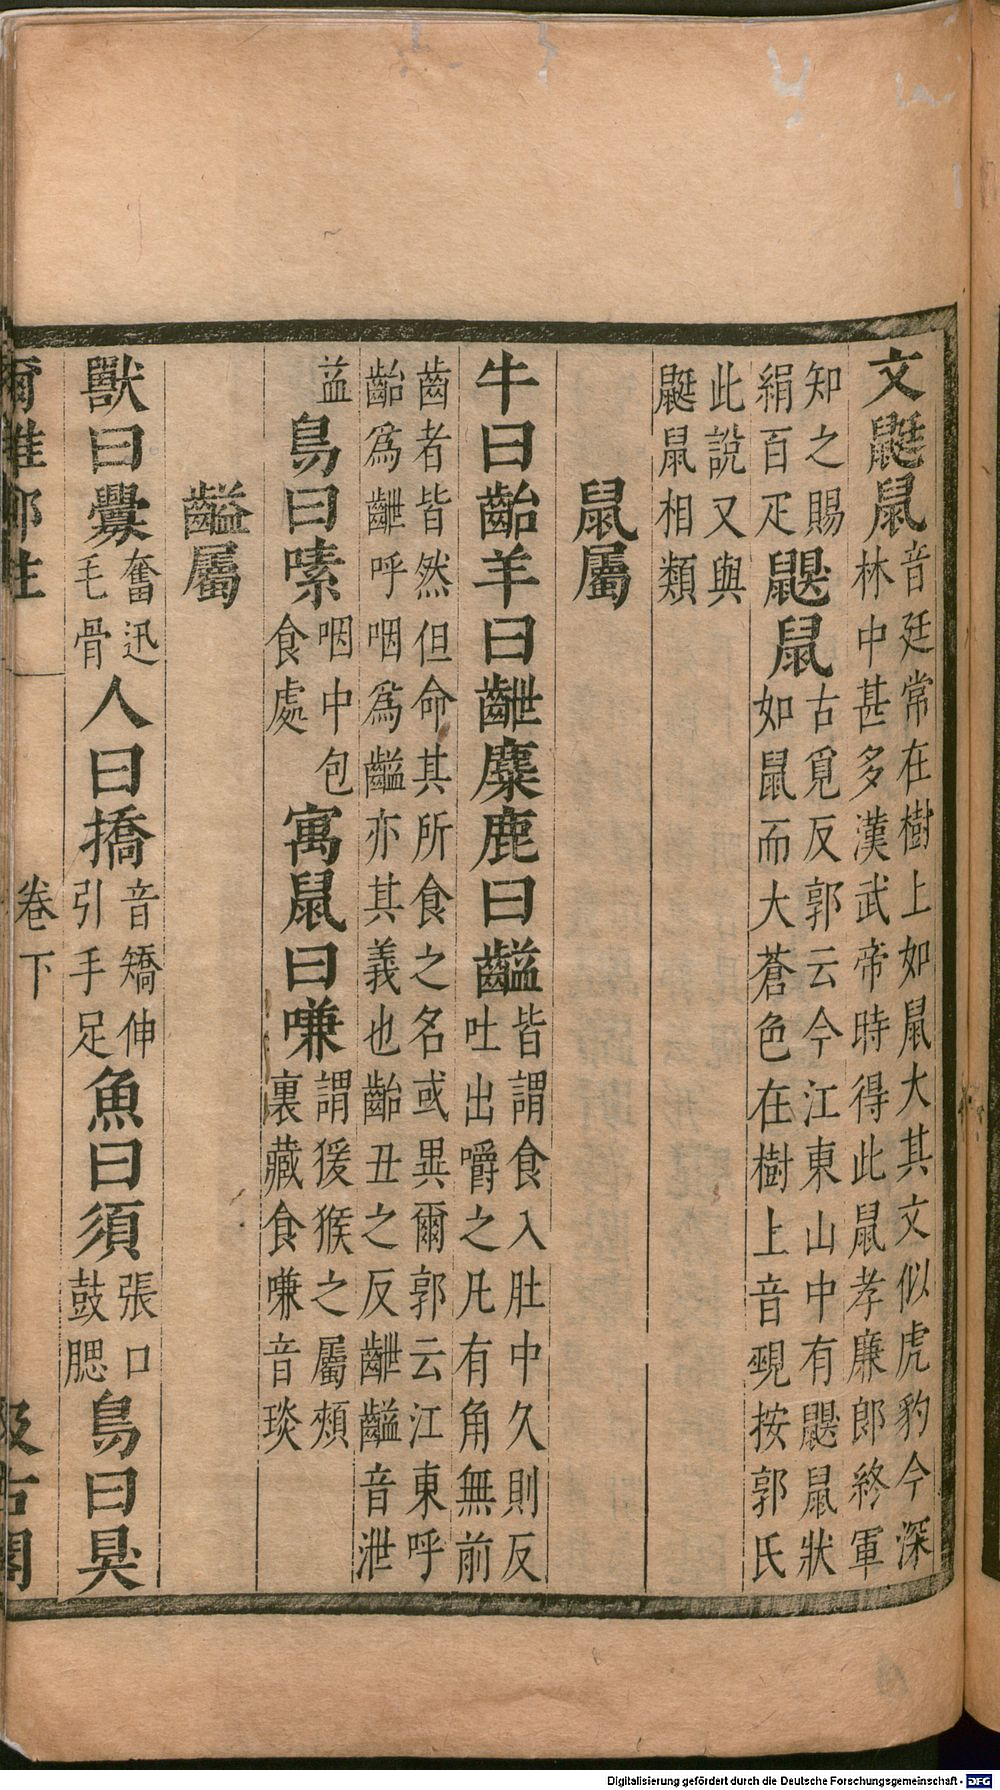 文鼮鼠音廷常在樹上如鼠大其文似虎豹今深林中甚多漢武帝時得此鼠孝廉郎終軍
知之賜絹百疋鼳鼠古覓反郭云今江東山中有鼳鼠狀如鼠而大蒼色在樹上音覡按郭氏
此說又與鼮鼠相類
鼠屬
牛曰齝羊曰齛麋鹿曰齸皆謂食入肚中久則反吐出嚼之凡有角無前
齒者皆然但命其所食之名或異爾郭云江東呼齝爲齛呼咽爲齸亦其義也齝丑之反齛齸音泄
益鳥曰嗉咽中包食處寓鼠曰嗛謂猨猴之屬頰裏藏食嗛音琰
齸屬
獸曰釁奮迅毛骨人曰撟音矯伸引手足魚曰須張口鼓腮鳥曰狊
爾雅郑注 卷下 汲古閣
Digitalisierung gefördert durch die Deutsche Forschungsgemeinschaft - DFG